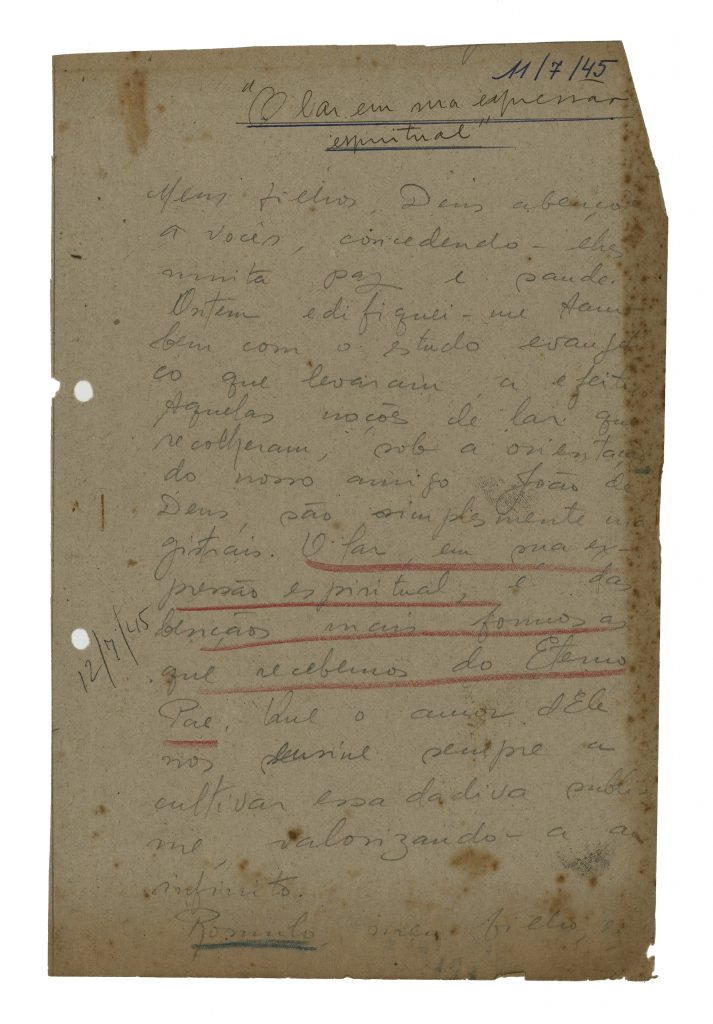 11/7/45
"O lar em sua expressão
espiritual"
Meus filhos, Deus abençoe
a vocês, concedendo-lhes
muita paz e saude.
Ontem edifiquei-me tam-
bem com o estudo evangeli
co que levaram a efeito.
Aquelas noções de lar que
recolheram, sob a orientação
do nosso amigo João de
Deus, são simplesmente ma
gistrais. O lar, em sua ex-
pressão espiritual, é das
benções mais formosas
que recebemos do Eterno
12/7/45
Pae. Que o amor dEle
nos ensine sempre a
cultivar essa dadiva subli-
me, valorizando-a ao
infinito.
Rômulo, meu filho,